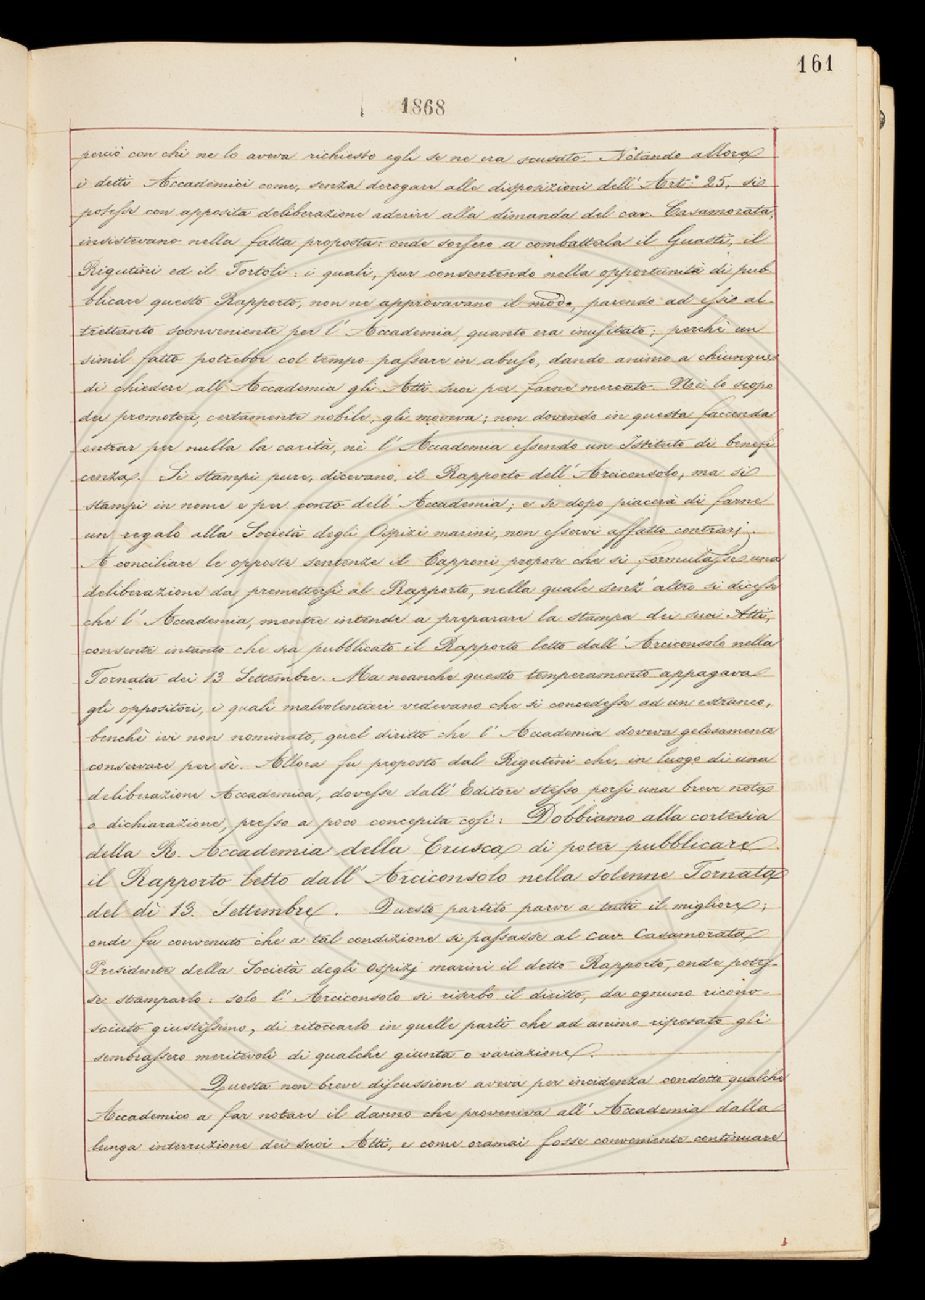 161
1868
perciò con chi ne lo aveva richiesto egli se ne era scusato. Notando allora
i detti Accademici come, senza derogare alle disposizioni dell' Art.° 25, si
potesse con apposita deliberazione aderire alla dimanda del cav. Casamorata,
insistevano nella fatta proposta: onde sorsero a combatterla il Guasti, il
Rigutini ed il Tortoli: i quali, pur consentendo nella opportunità di pub
blicare questo Rapporto, non ne approvavano il modo, parendo ad essi al
trettanto sconveniente per l' Accademia, quanto era inusitato; perchè un
simil fatto potrebbe col tempo passare in abuso, dando animo a chiunque
di chiedere all' Accademia gli Atti suoi per farne mercato. Nè lo scopo
dei promotori, certamente nobile, gli moveva; non dovendo in questa faccenda
entrar per nulla la carità, nè l' Accademia essendo un Istituto di benefi
cenza. Si stampi pure, dicevano, il Rapporto dell' Arciconsolo, ma si
stampi in nome e per conto dell' Accademia; e se dopo piacerà di farne
un regalo alla Società degli Ospizi marini, non esservi affatto contrarj.
A conciliare le opposte sentenze il Capponi propose che si formulasse una
deliberazione da premettersi al Rapporto, nella quale senz' altro si dicesse
che l' Accademia, mentre intende a preparare la stampa dei suoi Atti,
consente intanto che sia pubblicato il Rapporto letto dall' Arciconsolo nella
Tornata dei 13 Settembre. Ma neanche questo temperamento appagava
gli oppositori, i quali malvolentieri vedevano che si concedesse ad un estraneo,
benchè ivi non nominato, quel diritto che l' Accademia doveva gelosamente
conservare per sè. Allora fu proposto dal Rigutini che, in luogo di una
deliberazione Accademica, dovesse dall' Editore stesso porsi una breve nota
o dichiarazione, presso a poco concepita così: Dobbiamo alla cortesia
della R. Accademia della Crusca di poter pubblicare
il Rapporto letto dall' Arciconsolo nella solenne Tornata
del dì 13. Settembre. Questo partito parve a tutti il migliore;
onde fu convenuto che a tal condizione si passasse al cav. Casamorata
Presidente della Società degli ospizj marini il detto Rapporto, onde potes-
se stamparlo: solo l' Arciconsolo si riserbò il diritto, da ognuno ricono-
sciuto giustissimo, di ritoccarlo in quelle parti che ad animo riposato gli
sembrassero meritevoli di qualche giunta o variazione.
Questa non breve discussione aveva per incidenza condotto qualche
Accademico a far notare il danno che proveniva all' Accademia dalla
lunga interruzione dei suoi Atti, e come oramai fosse conveniente continuare